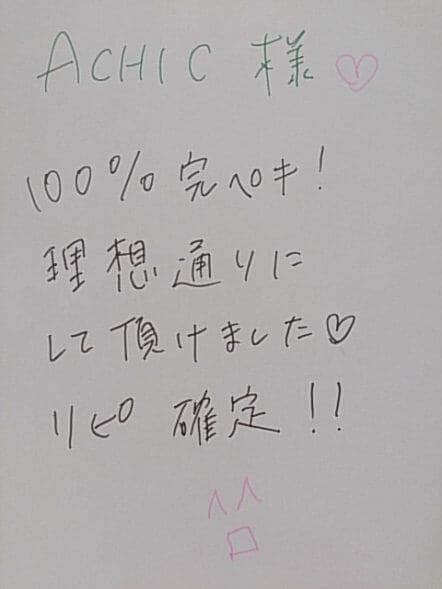 ACHIC 様♡
100%完ペキ!
理想通りに
して頂けました♡
リピ 確定!!
^^
ロ